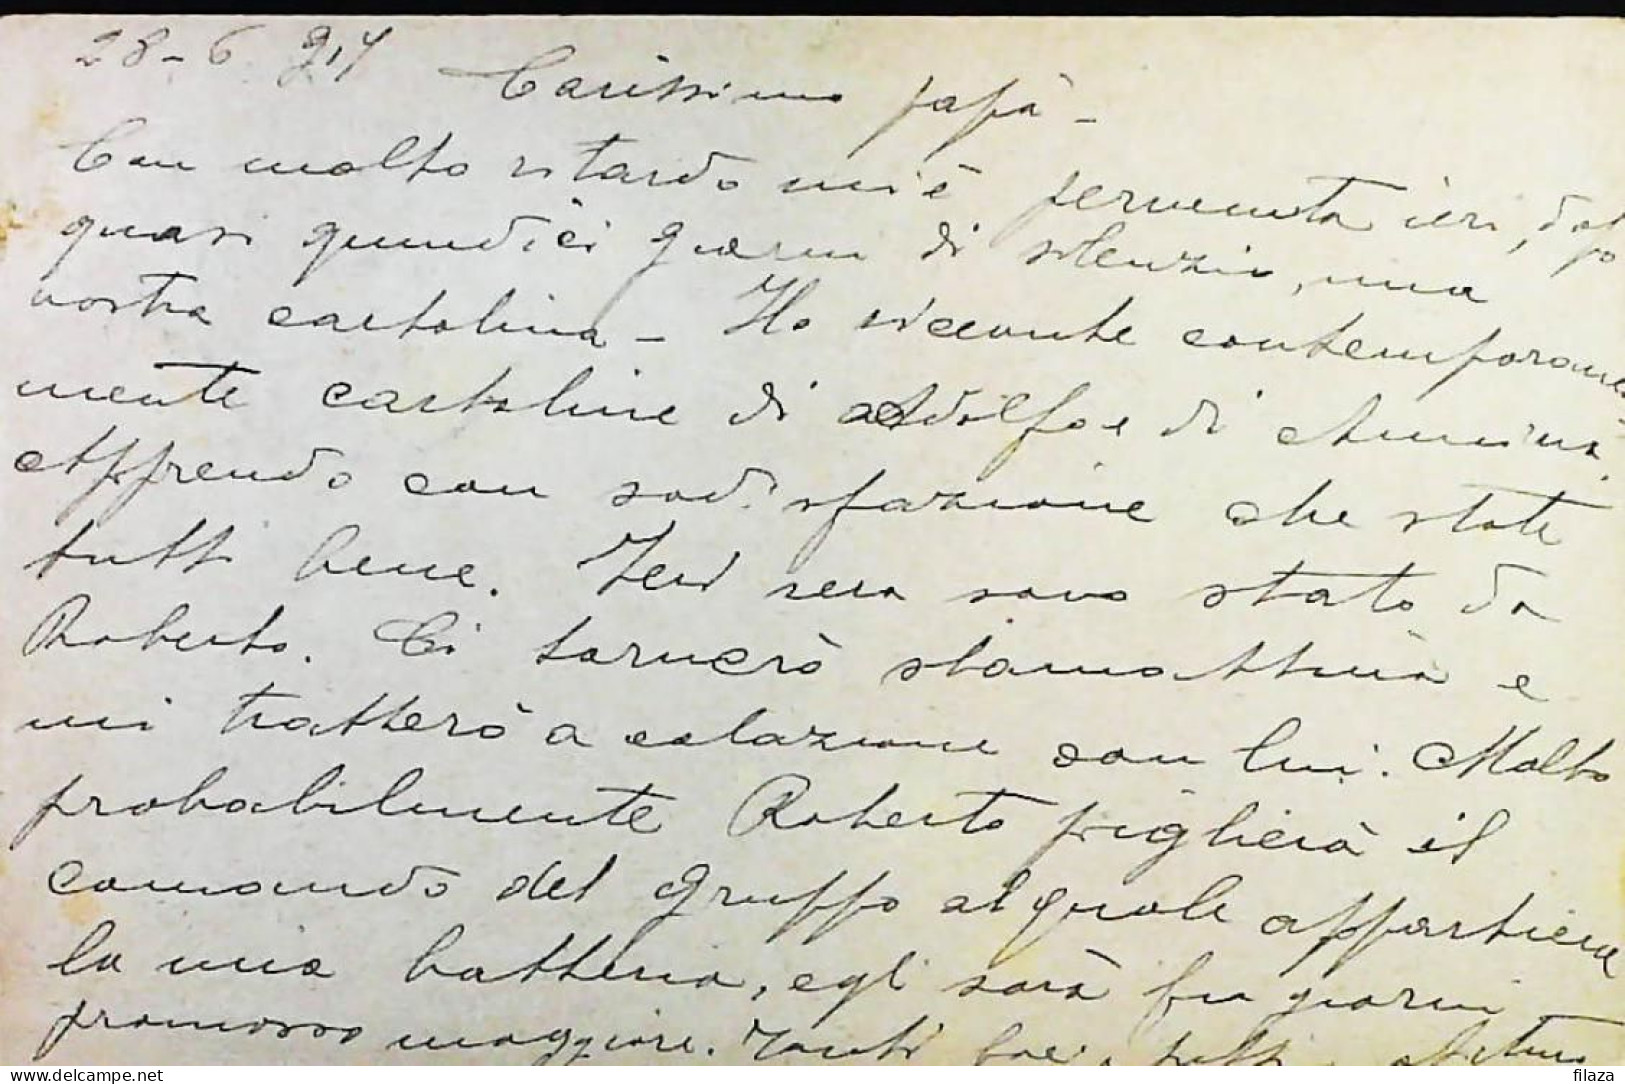 28-6 917
Carissimo papà -
Con molto ritardo mi è pervenuta ieri, dopo
quasi quindici giorni di silenzio, una
vostra cartolina - Ho ricevute contemporanea-
mente cartoline di Adolfo e di Annina.
Apprendo con sodisfazione che state
tutti bene. Ieri sera sono stato da
Roberto. Ci tornerò stamattina e
mi tratterò a colazione con lui. Molto
probabilmente Roberto piglierà il
comando del gruppo al quale appartiene
la mia batteria, egli sarà fra giorni
promosso maggiore. Tanti baci a tutti
delcampe.net
filaza